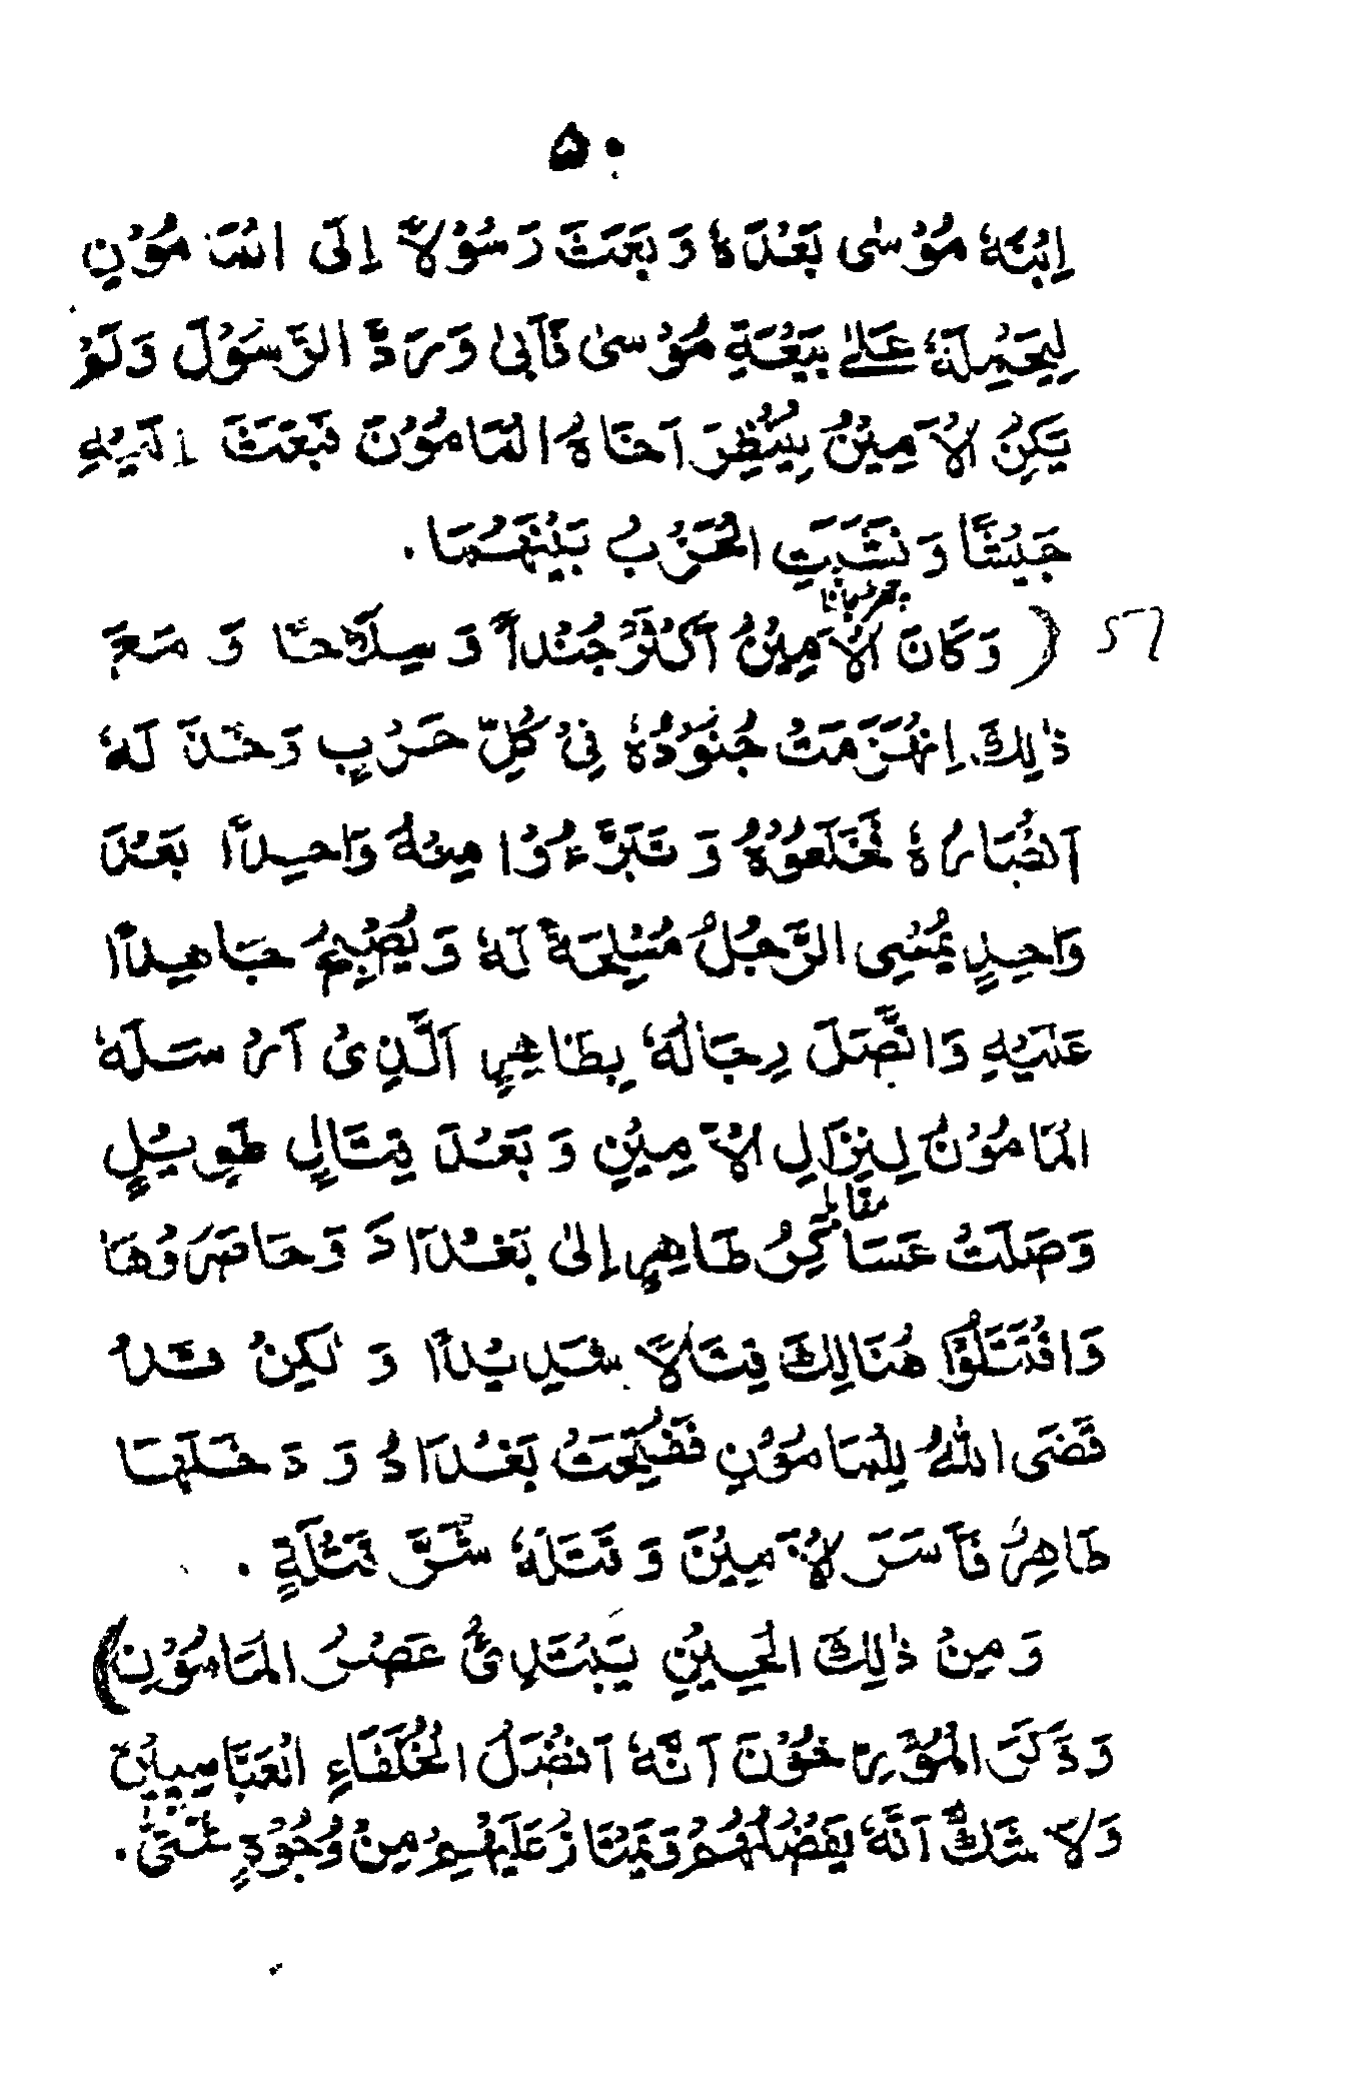 ۵۰
اِبْنَهٗ مُوْسٰی بَعْدَهٗ وَ بَعَثَ رَسُوْلاً اِلَی الْمَامُوْنِ
لِیَحْمِلَهٗ عَلٰی بَیْعَةِ مُوْسٰی فَاَبٰی وَ رَدَّ الرَّسُوْلَ وَ لَمْ
یَکِنُ الْاَمِیْنُ یَنْظُرَ اَخَاهُ الْمَامُوْنَ فَبَعَثَ اِلَیْهِ
جَیْشًا وَ نَشَبَتِ الْحَرْبُ بَیْنَهُمَا .
( وَ کَانَ الْاَمِیْنُ اَکْثَرَ جُنْداً وَ سِلَاحًا وَ مَعَ
ذٰلِكَ اِنْهَزَمَتْ جُنُوْدُهٗ فِیْ کُلِّ حَرْبٍ وَ خَذَلَهٗ
اَنْصَارُهٗ فَخَلَعُوْهُ وَ تَبَرَّءُوْا مِنْهُ وَاحِدًا بَعْدَ
وَاحِدٍ یُمْسِی الرَّجُلُ مُسْلِحَةً لَهٗ وَ یُصْبِحُ جَاهِدًا
عَلَیْهِ وَ اتَّصَلَ رِجَالُهٗ بِطَاهِرٍ اَلَّذِیْ اَرْسَلَهٗ
الْمَامُوْنُ لِنِزَالِ الْاَمِیْنِ وَ بَعْدَ قِتَالٍ طَوِیْلٍ
وَصَلَتْ عَسَاکِرُ طَاهِرٍ اِلٰی بَغْدَادَ وَ حَاصَرُوْهَا
وَ اقْتَتَلُوْا هُنَالِكَ قِتَالاً شَدِیْدًا وَ لٰکِنْ قَدْ
قَضَی اللّٰهُ لِلْمَامُوْنِ فَفُتِحَتْ بَغْدَادُ وَ دَخَلَهَا
طَاهِرٌ فَاَسَرَ لْاَمِیْنَ وَ قَتَلَهٗ شَرَّ قَتْلَةٍ .
وَ مِنْ ذٰلِكَ الْحِیْنِ یَبْتَدِئُ عَصْرُ الْمَامُوْنِ )
وَ ذَکَرَ الْمُؤَرِّخُوْنَ اَنَّهٗ اَفْضَلُ الْخُلَفَاءِ الْعَبَّاسِیِیْنَ
وَ لَا شَكَّ اَنَّهٗ یَفْضُلُهُمْ وَ یَمْتَازُ عَلَیْهِمْ مِنْ وُجُوْهٍ شَتّٰی .